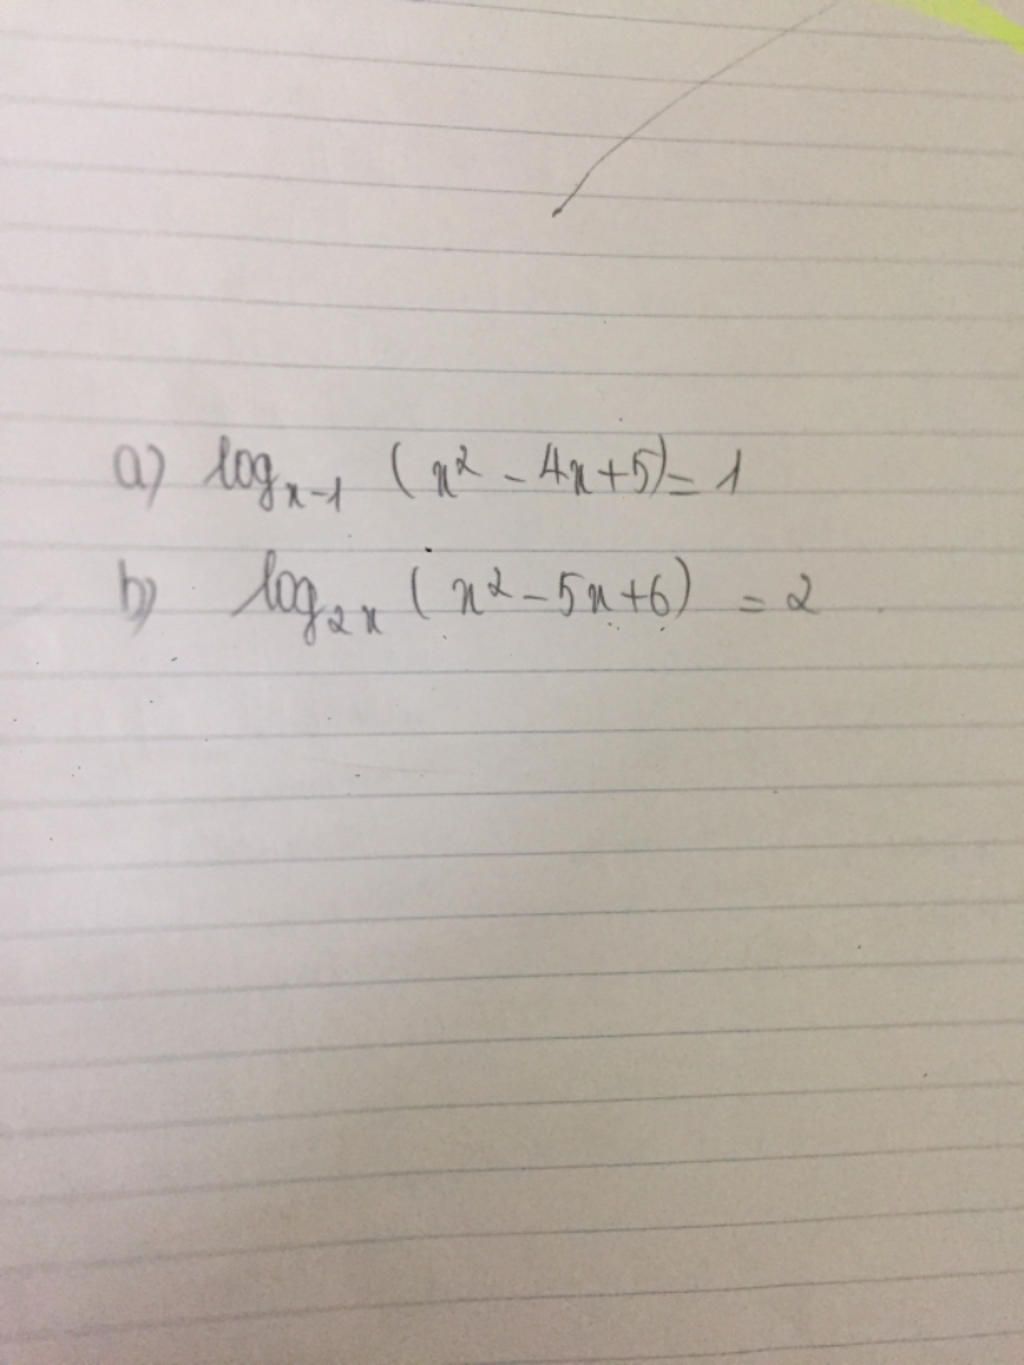 a) log_{x-1} (x² - 4x+5) = 1
b) log_{2x} (x² - 5x+6) = 2